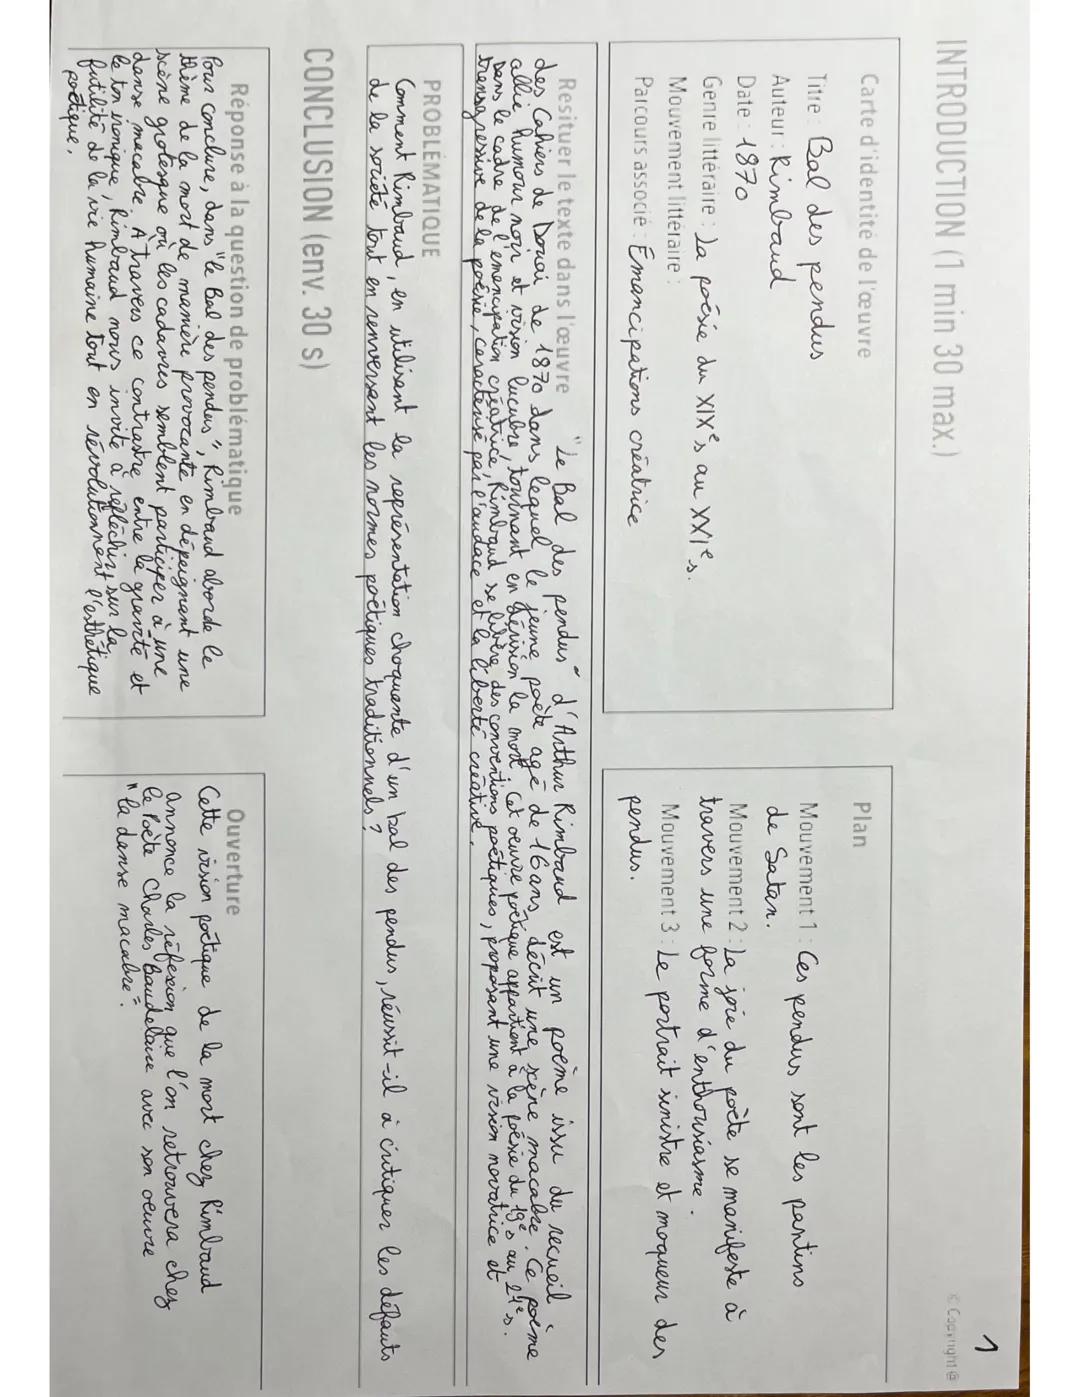 1
© Copyright @
INTRODUCTION (1 min 30 max.)
Carte d'identité de l'œuvre
Titre : Bal des pendus
Auteur : Rimbaud
Date : 1870
Genre littéraire : La poésie du XIXe s au XXIe s.
Mouvement littéraire :
Parcours associé : Émancipations créatrice
Plan
Mouvement 1 : Ces pendus sont les pantins
de Satan.
Mouvement 2 : La joie du poète se manifeste à
travers une forme d'enthousiasme.
Mouvement 3 : Le portrait sinistre et moqueur des
pendus.
Resituer le texte dans l'œuvre "Le Bal des pendus" d'Arthur Rimbaud est un poème issu du recueil
des Cahiers de Douai de 1870 dans lequel le jeune poète agé de 16 ans, décrit une scène macabre. Ce poème
allie humour noir et vision lucubre, tournant en dérision la mort. Cet oeuvre poétique appartient à la poésie du 19e s au 21e s.
Dans le cadre de l'émancipation créatrice, Rimbaud se libère des conventions poétiques, proposant une vision novatrice et
transgressive de la poésie, caractérisé par l'audace et la liberté créative.
PROBLÉMATIQUE
Comment Rimbaud, en utilisant la représentation choquante d'un bal des pendus, réussit-il à critiquer les défauts
de la société tout en renversant les normes poétiques traditionnels ?
CONCLUSION (env. 30 s)
Réponse à la question de problématique
Pour conclure, dans "le Bal des pendus", Rimbaud aborde le
thème de la mort de manière provocante en dépeignant une
scène grotesque où les cadavres semblent participer à une
danse macabre. A travers ce contraste entre la gravité et
le ton ironique, Rimbaud nous invite à réfléchir sur la
futilité de la vie humaine tout en révolutionnent l'esthétique
poétique.
Ouverture
Cette vision poétique de la mort chez Rimbaud
annonce la réflexion que l'on retrouvera chez
le Poète Charles Baudelaire avec son oeuvre
"la danse macabre".